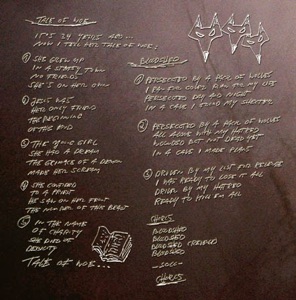 TALE OF WOE
IT'S 24 YEARS AGO...
NOW I TELL HER TALE OF WOE:
① SHE GREW UP
IN A SHABBY TOWN
NO FRIENDS
SHE'S ON HER OWN
② JESUS WAS
HER ONLY FRIEND
THE BEGINNING
OF THE END
③ THE YOUNG GIRL
SHE HAD A DREAM
THE GRIMACE OF A DEMON
MADE HER SCREAM
④ SHE CONFIDED
TO A PRIEST
HE SAW ON HER FEET
THE NUMBER OF THE BEAST
⑤ IN THE NAME
OF CHARITY
SHE DIED OF
TALE OF WOE...
BLOODSHED
① PERSECUTED BY A PACK OF WOLVES
I RAN FOR MY LIFE
PERSECUTED DAY AND NIGHT
IN A CAVE I FOUND MY SHELTER
② PERSECUTED BY A PACK OF WOLVES
ALL ALONE WITH MY HATRED
WOUNDED BUT NOT DEAD YET
IN A CAVE I MADE PLANS
③ DRIVEN BY MY LUST FOR REVENGE
I WAS READY TO LOSE IT ALL
DRIVEN BY MY HATRED
READY TO KILL 'EM ALL
CHORUS
BLOODSHED
BLOODSHED
BLOODSHED (REVENGE)
BLOODSHED
-SOLO-
CHORUS